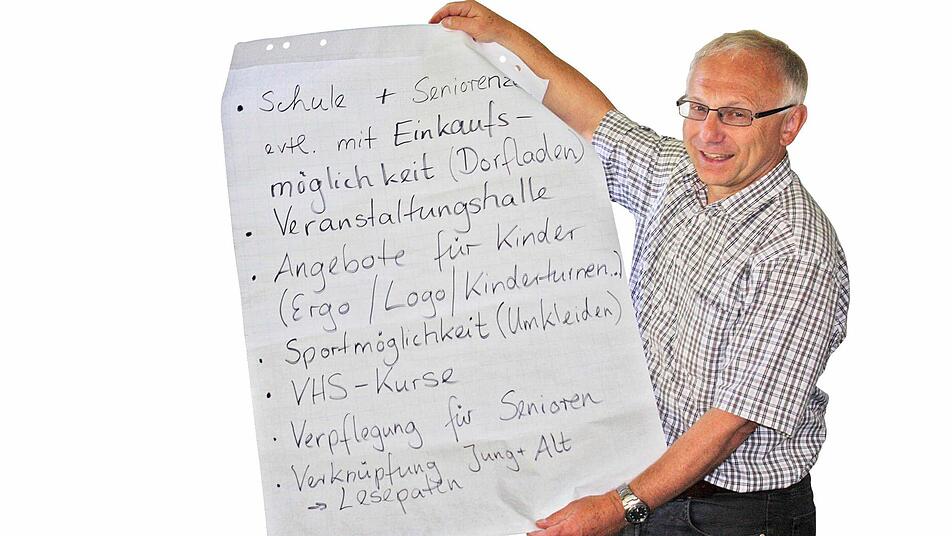 • Schule + Seniorenz
evtl. mit Einkaufs-
möglichkeit (Dorfladen)
• Veranstaltungshalle
• Angebote für Kinder
(Ergo/Logo/Kinderturnen..)
• Sportmöglichkeit (Umkleiden)
• VHS-Kurse
• Verpflegung für Senioren
• Verknüpfung Jung + Alt
→ Lesepaten